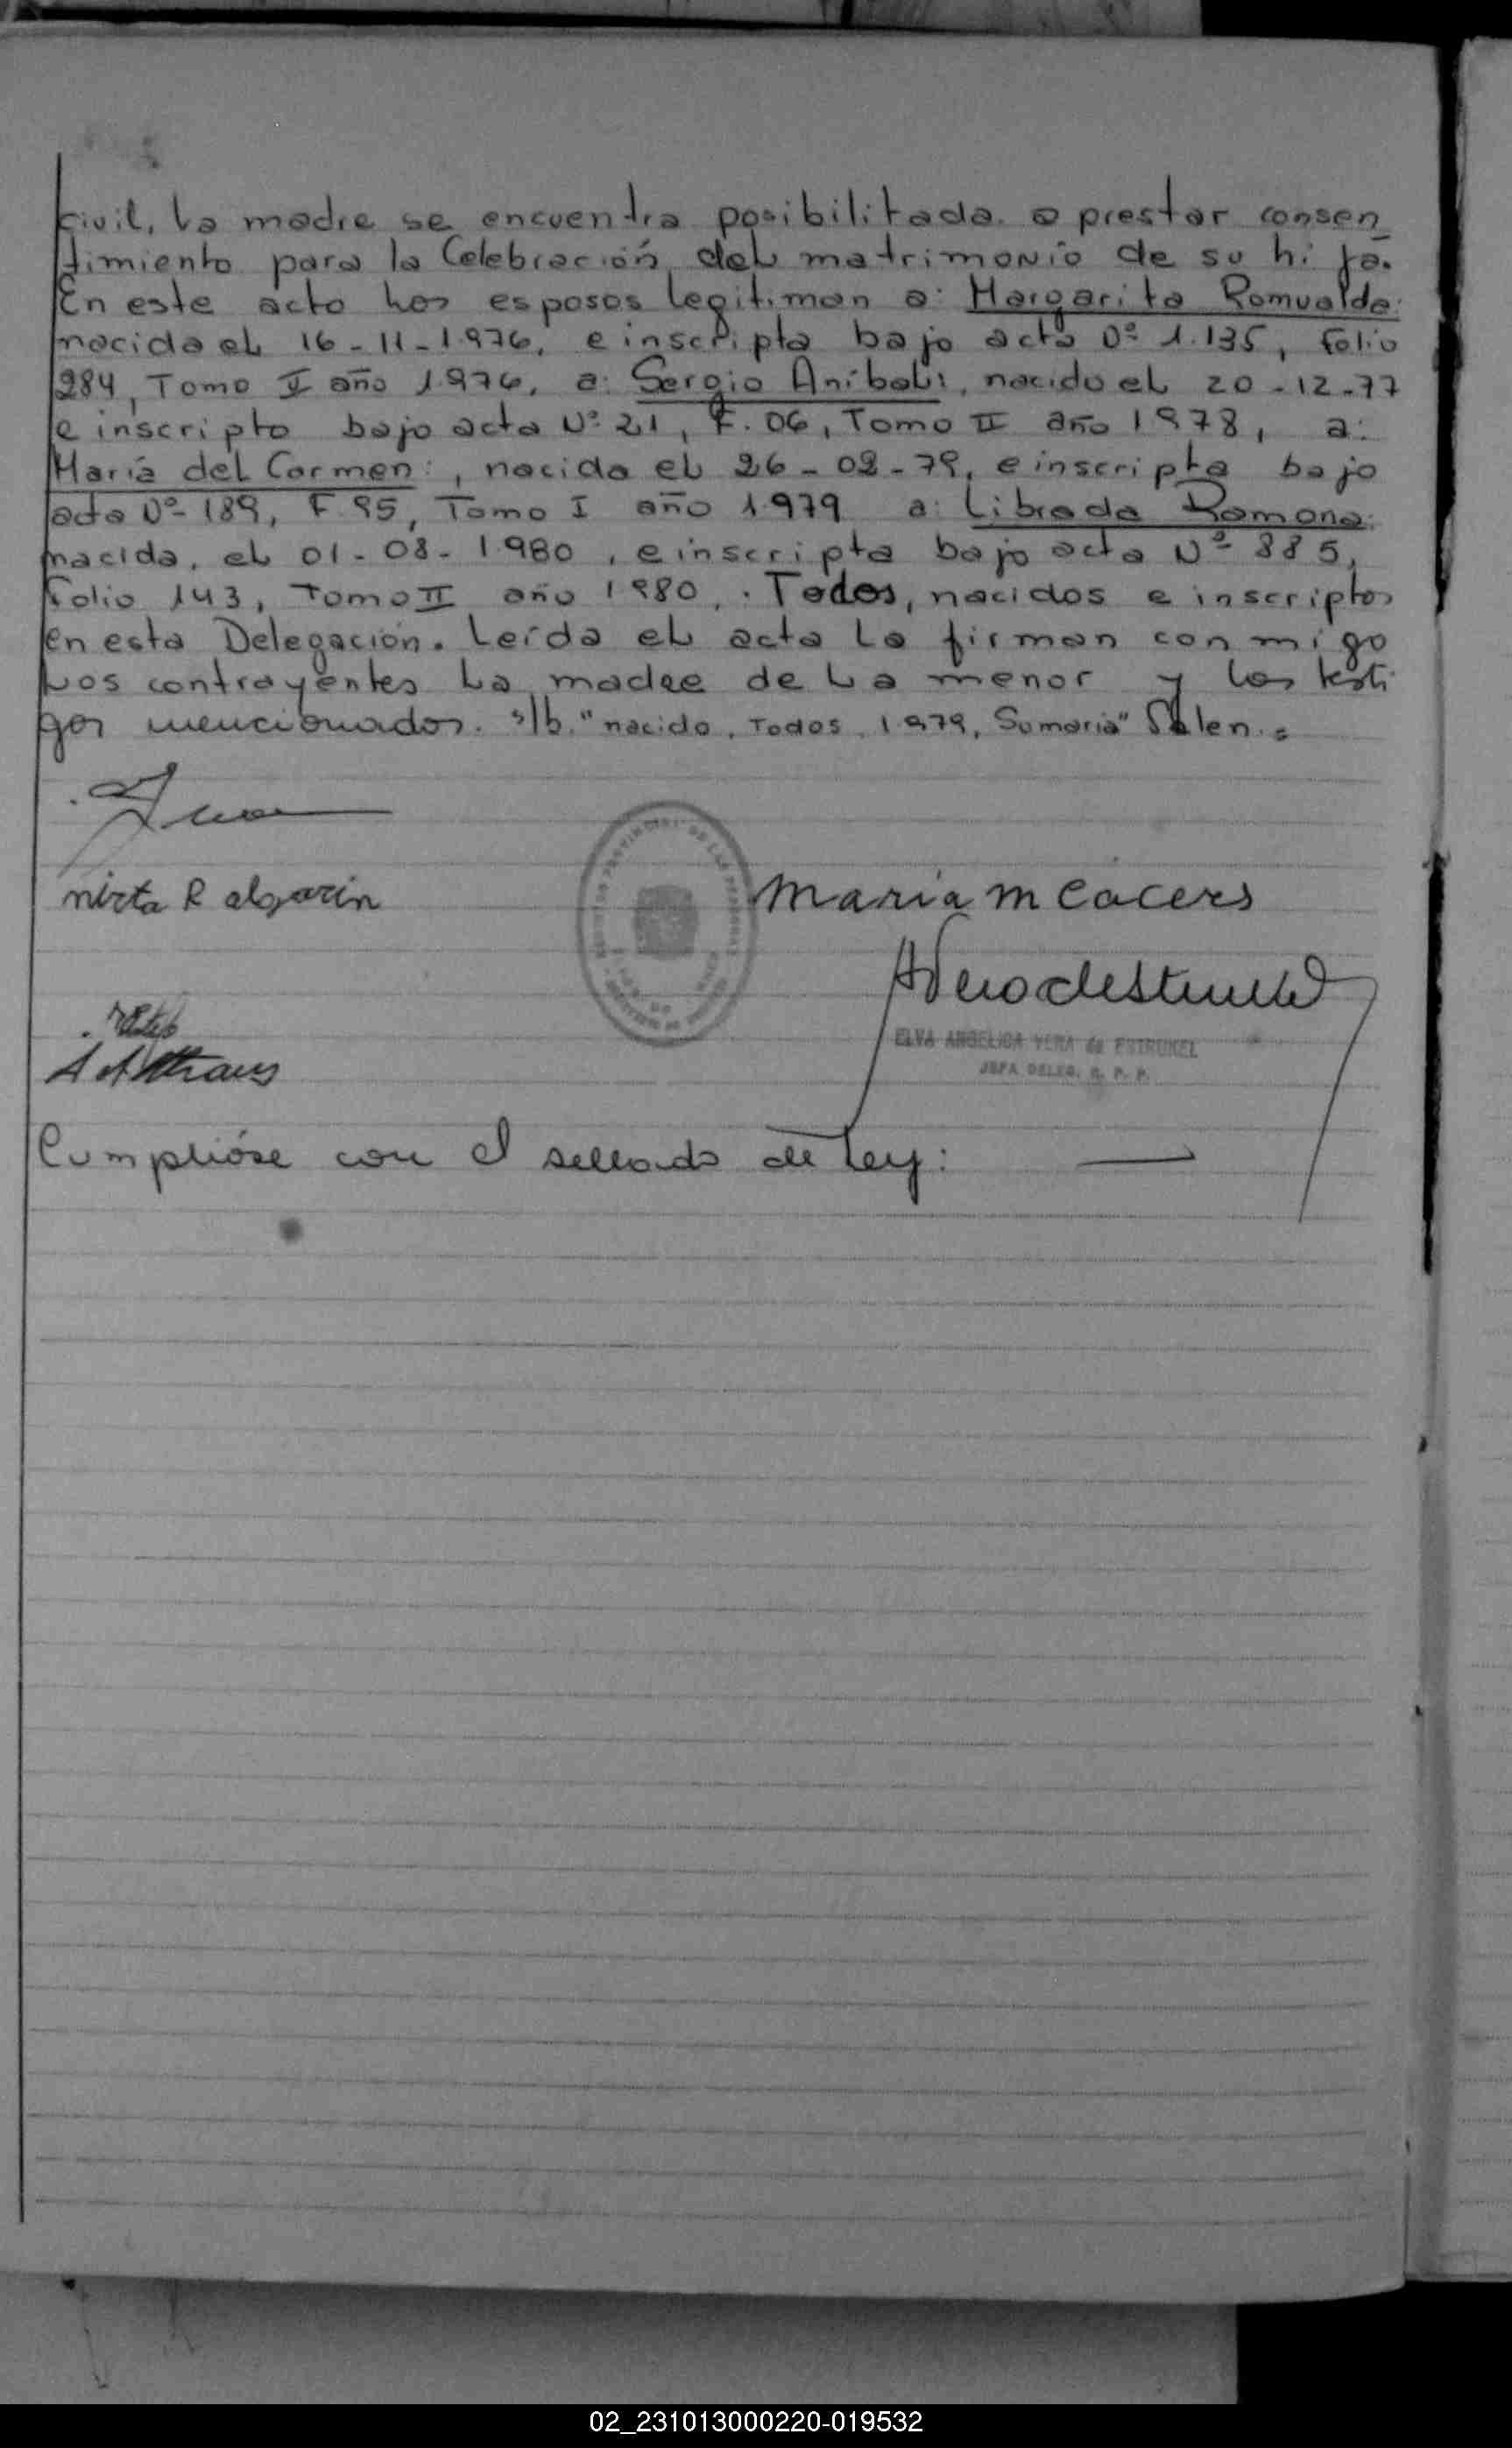 civil, la madre se encuentra posibilitada a prestar consen
timiento para la Celebración del matrimonio de su hija.
En este acto los esposos legitiman a: Margarita Romualda:
nacida el 16-11-1.976, e inscripta bajo acta Nº 1.135, folio
284, Tomo II año 1.976, a: Sergio Aníbal:, nacido el 20-12-77
e inscripto bajo acta Nº 21, F. 06, Tomo II año 1978, a:
María del Carmen:, nacida el 26-02-79, e inscripta bajo
acta Nº 189, F 95, Tomo I año 1.979 a: Librada Ramona:
nacida, el 01-08-1.980, e inscripta bajo acta Nº 885,
Folio 143, Tomo II año 1980,. Todos, nacidos e inscriptos
en esta Delegación. Leída el acta la firman conmigo
Los contrayentes La madre de La menor y los testi
gos mencionados. s/b. "nacido, Todos, 1.979, Sumaria" Valen.=
nirta R algarin
maria m Cacers
ELVA ANGELICA VERA de ESTRUKEL
JEFA DELEG. R. P. P.
Cumplióse con el sellado de Ley: —
02_231013000220-019532